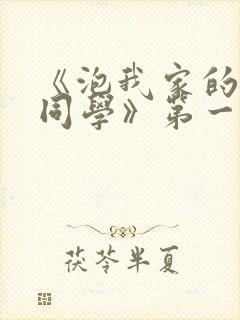 《泡我家的
同學》第一
茯苓半夏